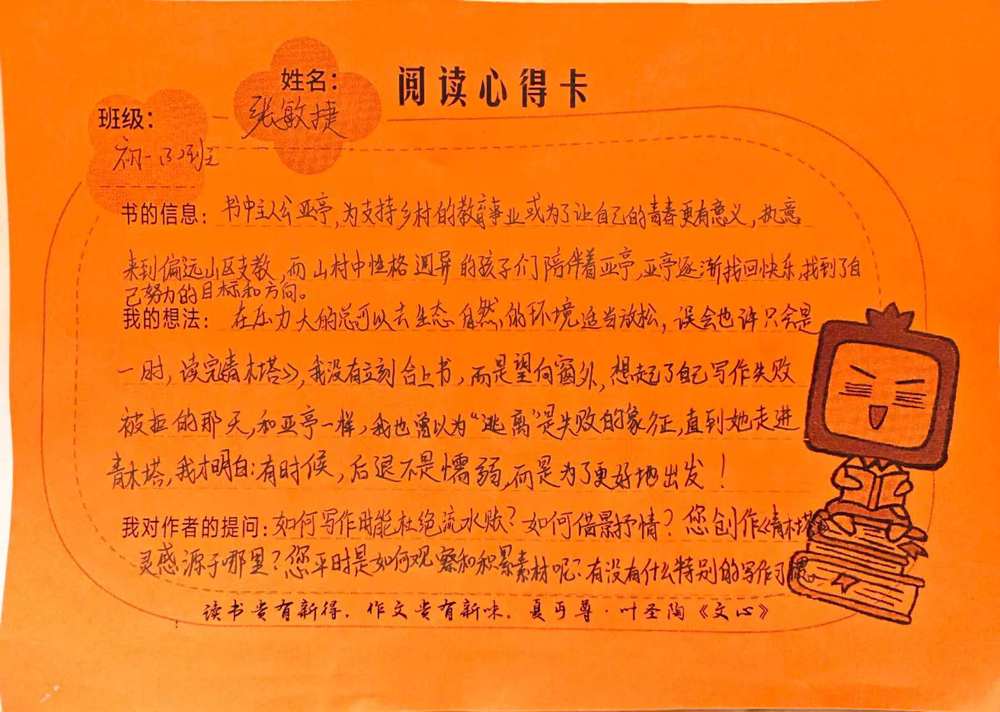 阅读心得卡
姓名：
张敏捷
班级：
初一(3)班
书的信息：书中主人公亚亭，为支持乡村的教育事业或为了让自己的青春更有意义，执意
来到偏远山区支教，而山村中性格迥异的孩子们陪伴着亚亭，亚亭逐渐找回快乐，找到了自
己努力的目标和方向。
我的想法：在压力大的可以去生态自然的环境适当放松，误会也许只会是
一时，读完青木塔》，我没有立刻合上书，而是望向窗外，想起了自己写作失败
被拒的那天，和亚亭一样，我也曾以为“逃离”是失败的象征，直到她走进
青木塔，我才明白：有时候，后退不是懦弱，而是为了更好地出发！
我对作者的提问：如何写作时能杜绝流水账？如何借景抒情？您创作《青木塔
灵感源于哪里？您平时是如何观察和积累素材呢？有没有什么特别的写作习惯
读书贵有新得，作文贵有新味。夏丏尊·叶圣陶《文心》